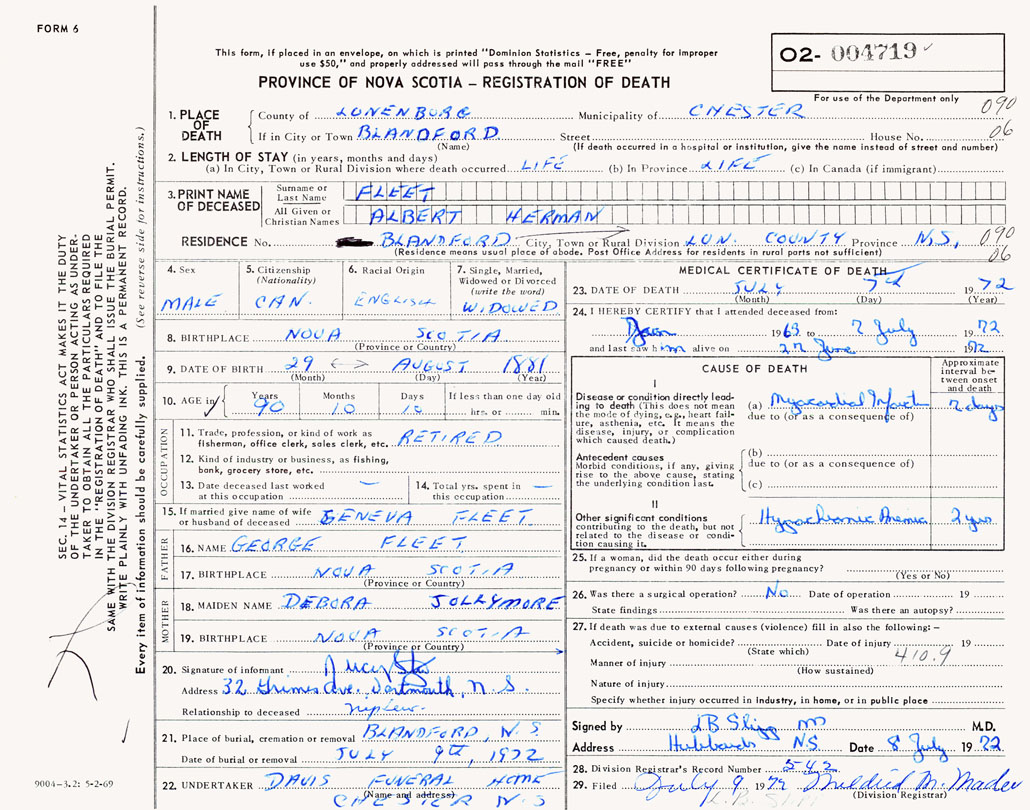 FORM 6
This form, if placed in an envelope, on which is printed "Dominion Statistics – Free, penalty for improper
use $50," and properly addressed will pass through the mail "FREE"
PROVINCE OF NOVA SCOTIA – REGISTRATION OF DEATH
02- 004719
For use of the Department only
090
06
1. PLACE OF DEATH County of LUNENBURG Municipality of CHESTER
If in City or Town BLANDFORD Street House No.
(Name) (If death occurred in a hospital or institution, give the name instead of street and number)
2. LENGTH OF STAY (in years, months and days)
(a) In City, Town or Rural Division where death occurred LIFE (b) In Province LIFE (c) In Canada (if immigrant)
3. PRINT NAME OF DECEASED Surname or Last Name FLEET
All Given or Christian Names ALBERT HERMAN
RESIDENCE No. BLANDFORD City, Town or Rural Division LUN. COUNTY Province N.S, 090
(Residence means usual place of abode. Post Office Address for residents in rural parts not sufficient) 06
4. Sex MALE
5. Citizenship (Nationality) CAN.
6. Racial Origin ENGLISH
7. Single, Married, Widowed or Divorced (write the word) WIDOWED
8. BIRTHPLACE NOVA SCOTIA
(Province or Country)
9. DATE OF BIRTH 29 <--> AUGUST 1881
(Month) (Day) (Year)
10. AGE in Years 90 Months 10 Days 10 If less than one day old hrs. or min.
OCCUPATION
11. Trade, profession, or kind of work as RETIRED
fisherman, office clerk, sales clerk, etc.
12. Kind of industry or business, as fishing,
bank, grocery store, etc.
13. Date deceased last worked at this occupation —
14. Total yrs. spent in this occupation —
15. If married give name of wife or husband of deceased GENEVA FLEET
FATHER
16. NAME GEORGE FLEET
17. BIRTHPLACE NOVA SCOTIA
(Province or Country)
MOTHER
18. MAIDEN NAME DEBORA JOLLYMORE
19. BIRTHPLACE NOVA SCOTIA
(Province or Country)
20. Signature of informant
Address 32 Grimes Ave. Dartmouth, N.S.
Relationship to deceased nephew.
21. Place of burial, cremation or removal BLANDFORD, N.S
Date of burial or removal JULY 9th, 1972
22. UNDERTAKER DAVIS FUNERAL HOME
(Name and address)
CHESTER N S
MEDICAL CERTIFICATE OF DEATH
23. DATE OF DEATH JULY 7th 1972
(Month) (Day) (Year)
24. I HEREBY CERTIFY that I attended deceased from:
1969 to 7 July 1972
and last saw him alive on 27 June 1972
CAUSE OF DEATH
Approximate interval between onset and death
I
Disease or condition directly lead-
ing to death (This does not mean
the mode of dying, e.g., heart fail-
ure, asthenia, etc. It means the
disease, injury, or complication
which caused death.)
(a) Myocardial Infarct 7 days
due to (or as a consequence of)
Antecedent causes
Morbid conditions, if any, giving
rise to the above cause, stating
the underlying condition last.
(b)
due to (or as a consequence of)
(c)
II
Other significant conditions
contributing to the death, but not
related to the disease or condi-
tion causing it.
Hypochromic Anemia 2 yrs
25. If a woman, did the death occur either during
pregnancy or within 90 days following pregnancy?
(Yes or No)
26. Was there a surgical operation? No Date of operation 19
State findings Was there an autopsy?
27. If death was due to external causes (violence) fill in also the following:–
Accident, suicide or homicide? Date of injury 19
(State which)
410.9
Manner of injury
(How sustained)
Nature of injury
Specify whether injury occurred in industry, in home, or in public place
Signed by M.D.
Address Hubbards N.S Date 8 July 1972
28. Division Registrar's Record Number 542
29. Filed July 9 1972 Mildred M. Mader
(Division Registrar)
SEC. 14 – VITAL STATISTICS ACT MAKES IT THE DUTY
OF THE UNDERTAKER OR PERSON ACTING AS UNDER-
TAKER TO OBTAIN ALL THE PARTICULARS REQUIRED
IN THE "REGISTRATION OF DEATH" AND TO FILE THE
SAME WITH THE DIVISION REGISTRAR WHO SHALL ISSUE THE BURIAL PERMIT.
WRITE PLAINLY WITH UNFADING INK. THIS IS A PERMANENT RECORD.
Every item of information should be carefully supplied. (See reverse side for instructions.)
9004-3.2: 5-2-69